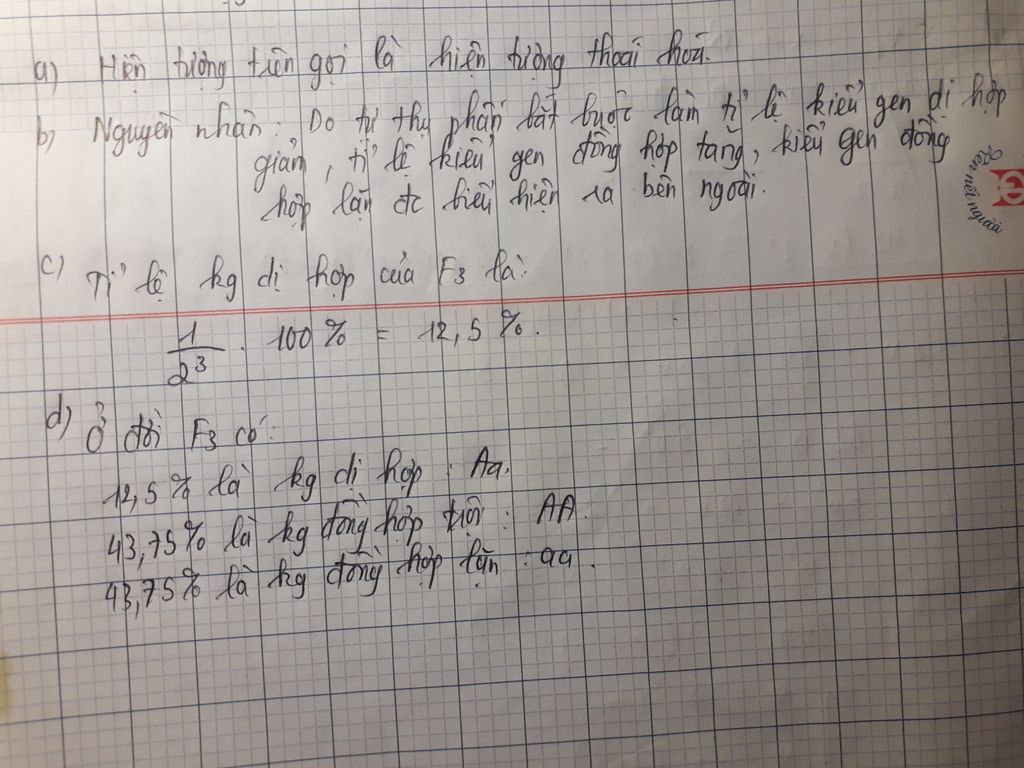 a) Hiện tượng trên gọi là hiện tượng thoái hoá.
b) Nguyên nhân: Do tự thụ phấn bắt buộc làm tỉ lệ kiểu gen dị hợp
giảm, tỉ lệ kiểu gen đồng hợp tăng, kiểu gen đồng
hợp lặn đc biểu hiện ra bên ngoài.
c) Tỉ lệ kg dị hợp của F3 là:
1/2³ . 100% = 12,5%.
d) Ở đời F3 có:
12,5% là kg dị hợp : Aa.
43,75% là kg đồng hợp trội : AA.
43,75% là kg đồng hợp lặn : aa.